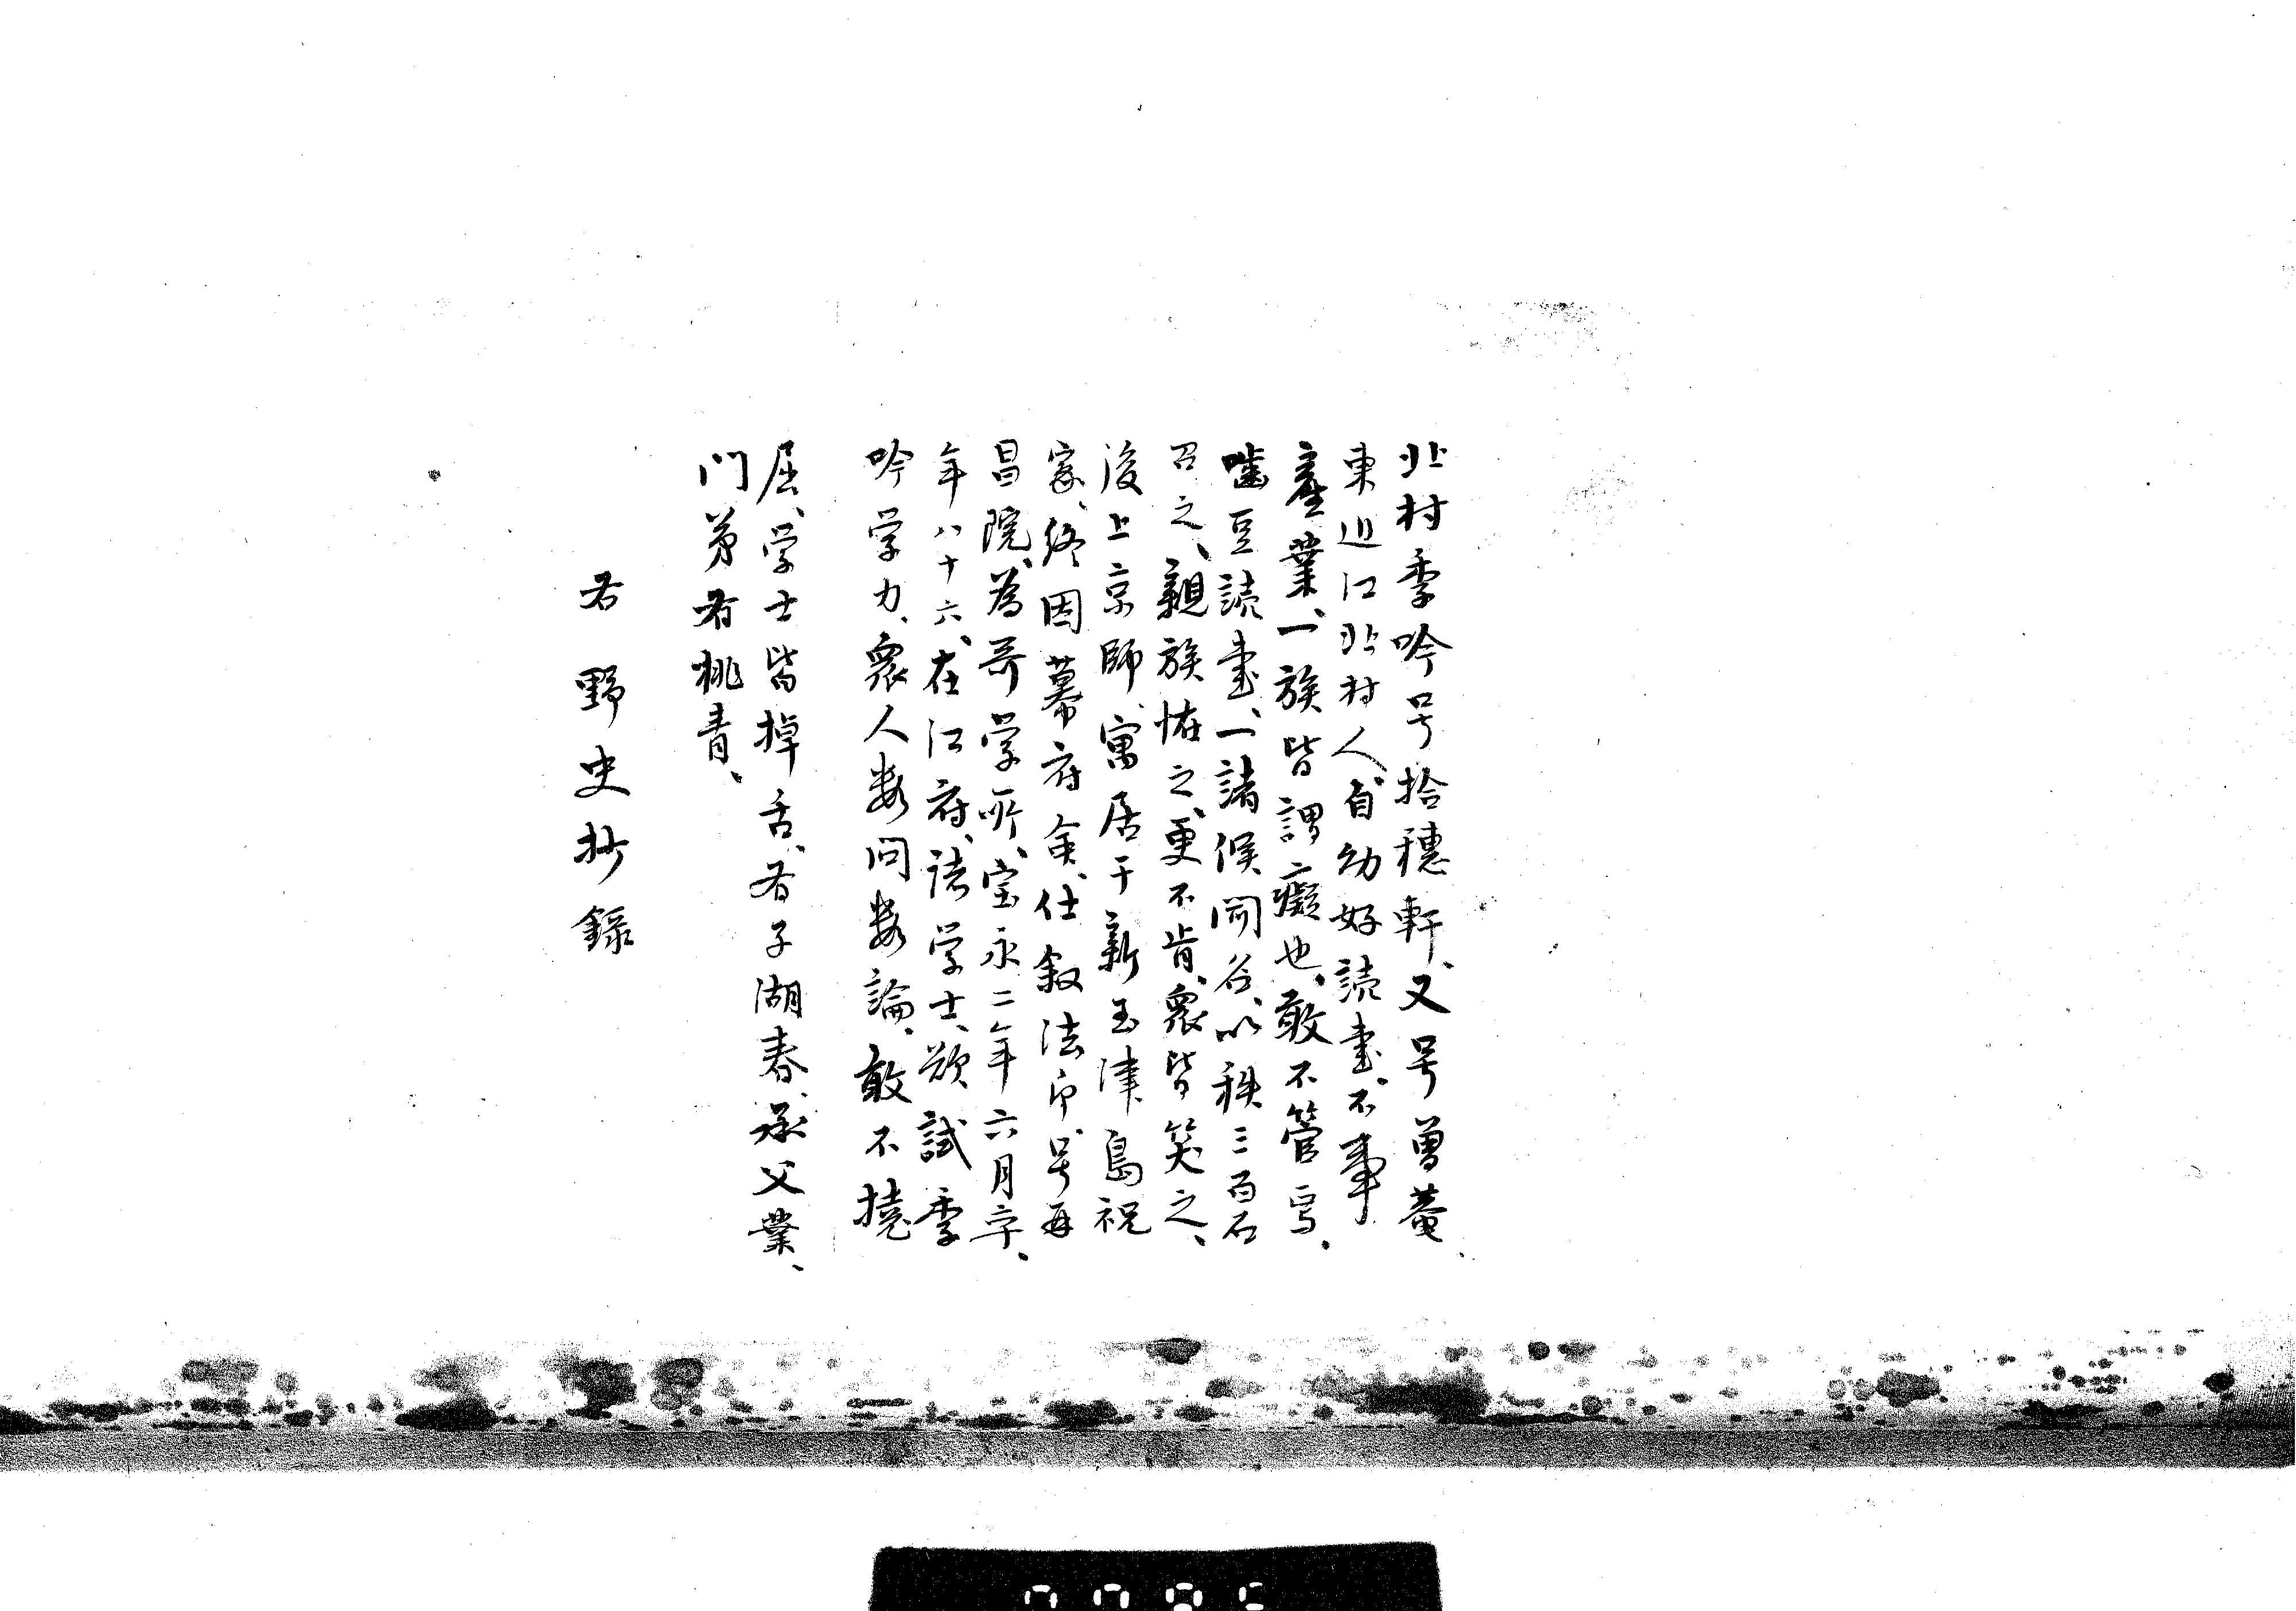 北村季吟号拾穂軒、又号曽菴、
東近江北村人、自幼好読書、不事
産業、一族皆謂癡也、敢不管焉、
嚙豆読書、一諸侯聞名、以秩三百石
召之、親族恠之、更不肯、衆皆笑之、
後上京師、寓居于新玉津島祝
家、終因幕府命、仕叙法印、号再
昌院、為哥学所、宝永二年六月卒、
年八十六、在江府、諸学士、欲試季
吟学力、衆人数問数論、敢不撓
屈、学士皆掉舌、有子湖春、承父業、
門弟有桃青、
右野史抄録